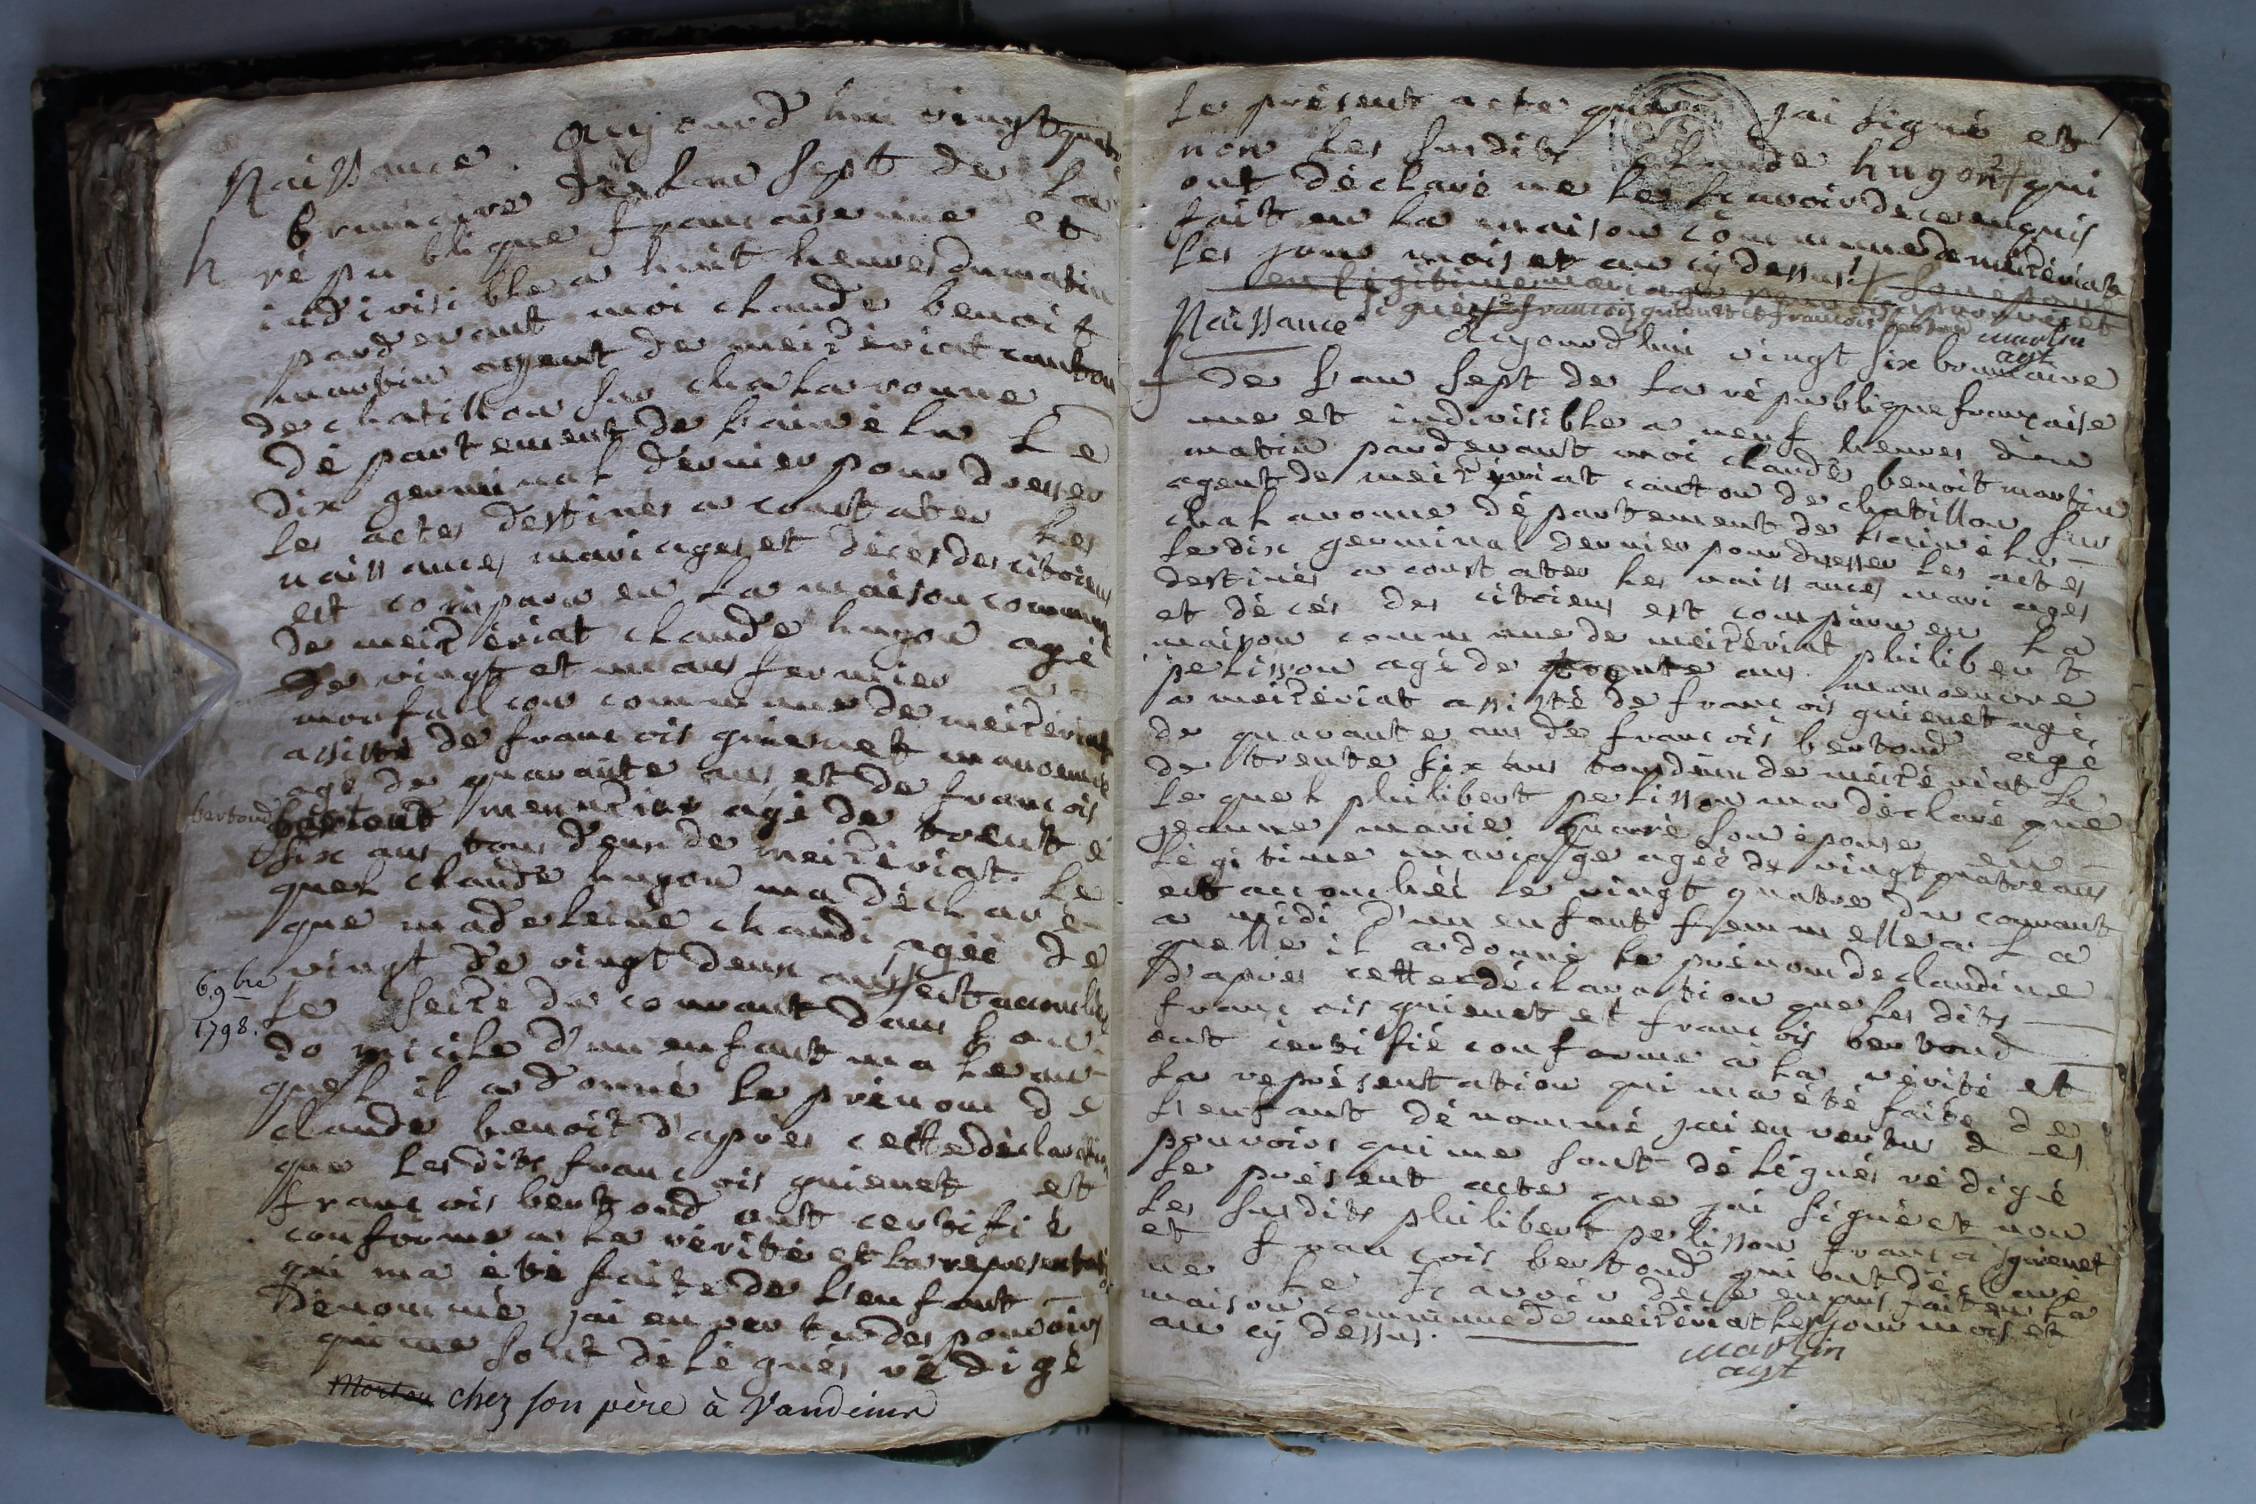 Naissance. aujourd'hui vingt
h brumaire de l'an sept de la
république francaise une et
indivisible a huit heures du matin
pardevant moi claude benoit
martin agent de meizériat canton
de chatillon sur chalaronne
département de l'ain élu le
dix germinal dernier pour dresser
les actes destinés a constater les
naissances mariages et décès des citoiens
est comparu en la maison commune
de meizériat claude hugon agé
de vingt et un ans fermier a
monfalcon commune de meizériat
assisté de francois guienet manoeuvre
agé de quarante ans et de francois
bertond
agé de trente
six ans tous deux de meizériat. le
quel claude hugon ma déclaré
que madeleine chaudi agée de
vingt de vingt deux ans est accouchée
6. 9bre
1798.
le seize du courant dans son
domicile d'un enfant male au
quel il a donné le prénom de
claude benoit d'après cette déclaration
que lesdits francois guienet et
francois bertond ont certifié
conforme a la vérité et la representation
qui ma été faite de l'enfant
dénommé jai en vertu des pouvoirs
qui me sont délégués rédigé
chez son père à Vandeins
le présent acte que jai signé et
non les susdits claude hugon qui
ont déclaré ne le scavoir de ce enquis
fait en la maison commune de meizériat
les jour mois et an cy dessus
en légitime mariage
francois guienet et francois bertond
martin
agt
Naissance aujourd'hui vingt six brumaire
f de l'an sept de la république française
une et indivisible a neuf heures du
matin pardevant moi claude benoit martin
agent de meizériat canton de chatillon sur
chalaronne département de l'ain élu
le dix germinal dernier pour dresser les actes
destinés a constater les naissances mariages
et décés des citoiens est comparu en la
maison commune de meizériat philibert
pelisson agé de trente ans manoeuvre
a meizériat assisté de francois guienet agé
de quarante ans de francois bertond agé
de trente six ans tous deux de meizériat le
le quel philibert pelisson ma déclaré que
jeanne marie son épouse en
légitime mariage agée de vingt quatre ans
est accouchée le vingt quatre du courant
a midi d'un enfant femmelle a la
quelle il a donné le prénom de claudine
d'après cette déclaration que les dits
francois guienet et francois bertond
ont certifié conforme a la vérité et
la représentation qui ma été faite de
l'enfant dénommé jai en vertu des
pouvoirs qui me sont délégués rédigé
le présent acte que jai signé et non
les susdits philibert pelisson francois guienet
et francois bertond qui ont déclaré
ne le scavoir de ce enquis fait en la
maison commune de meizériat les jour mois et
an cy dessus.
martin
agt